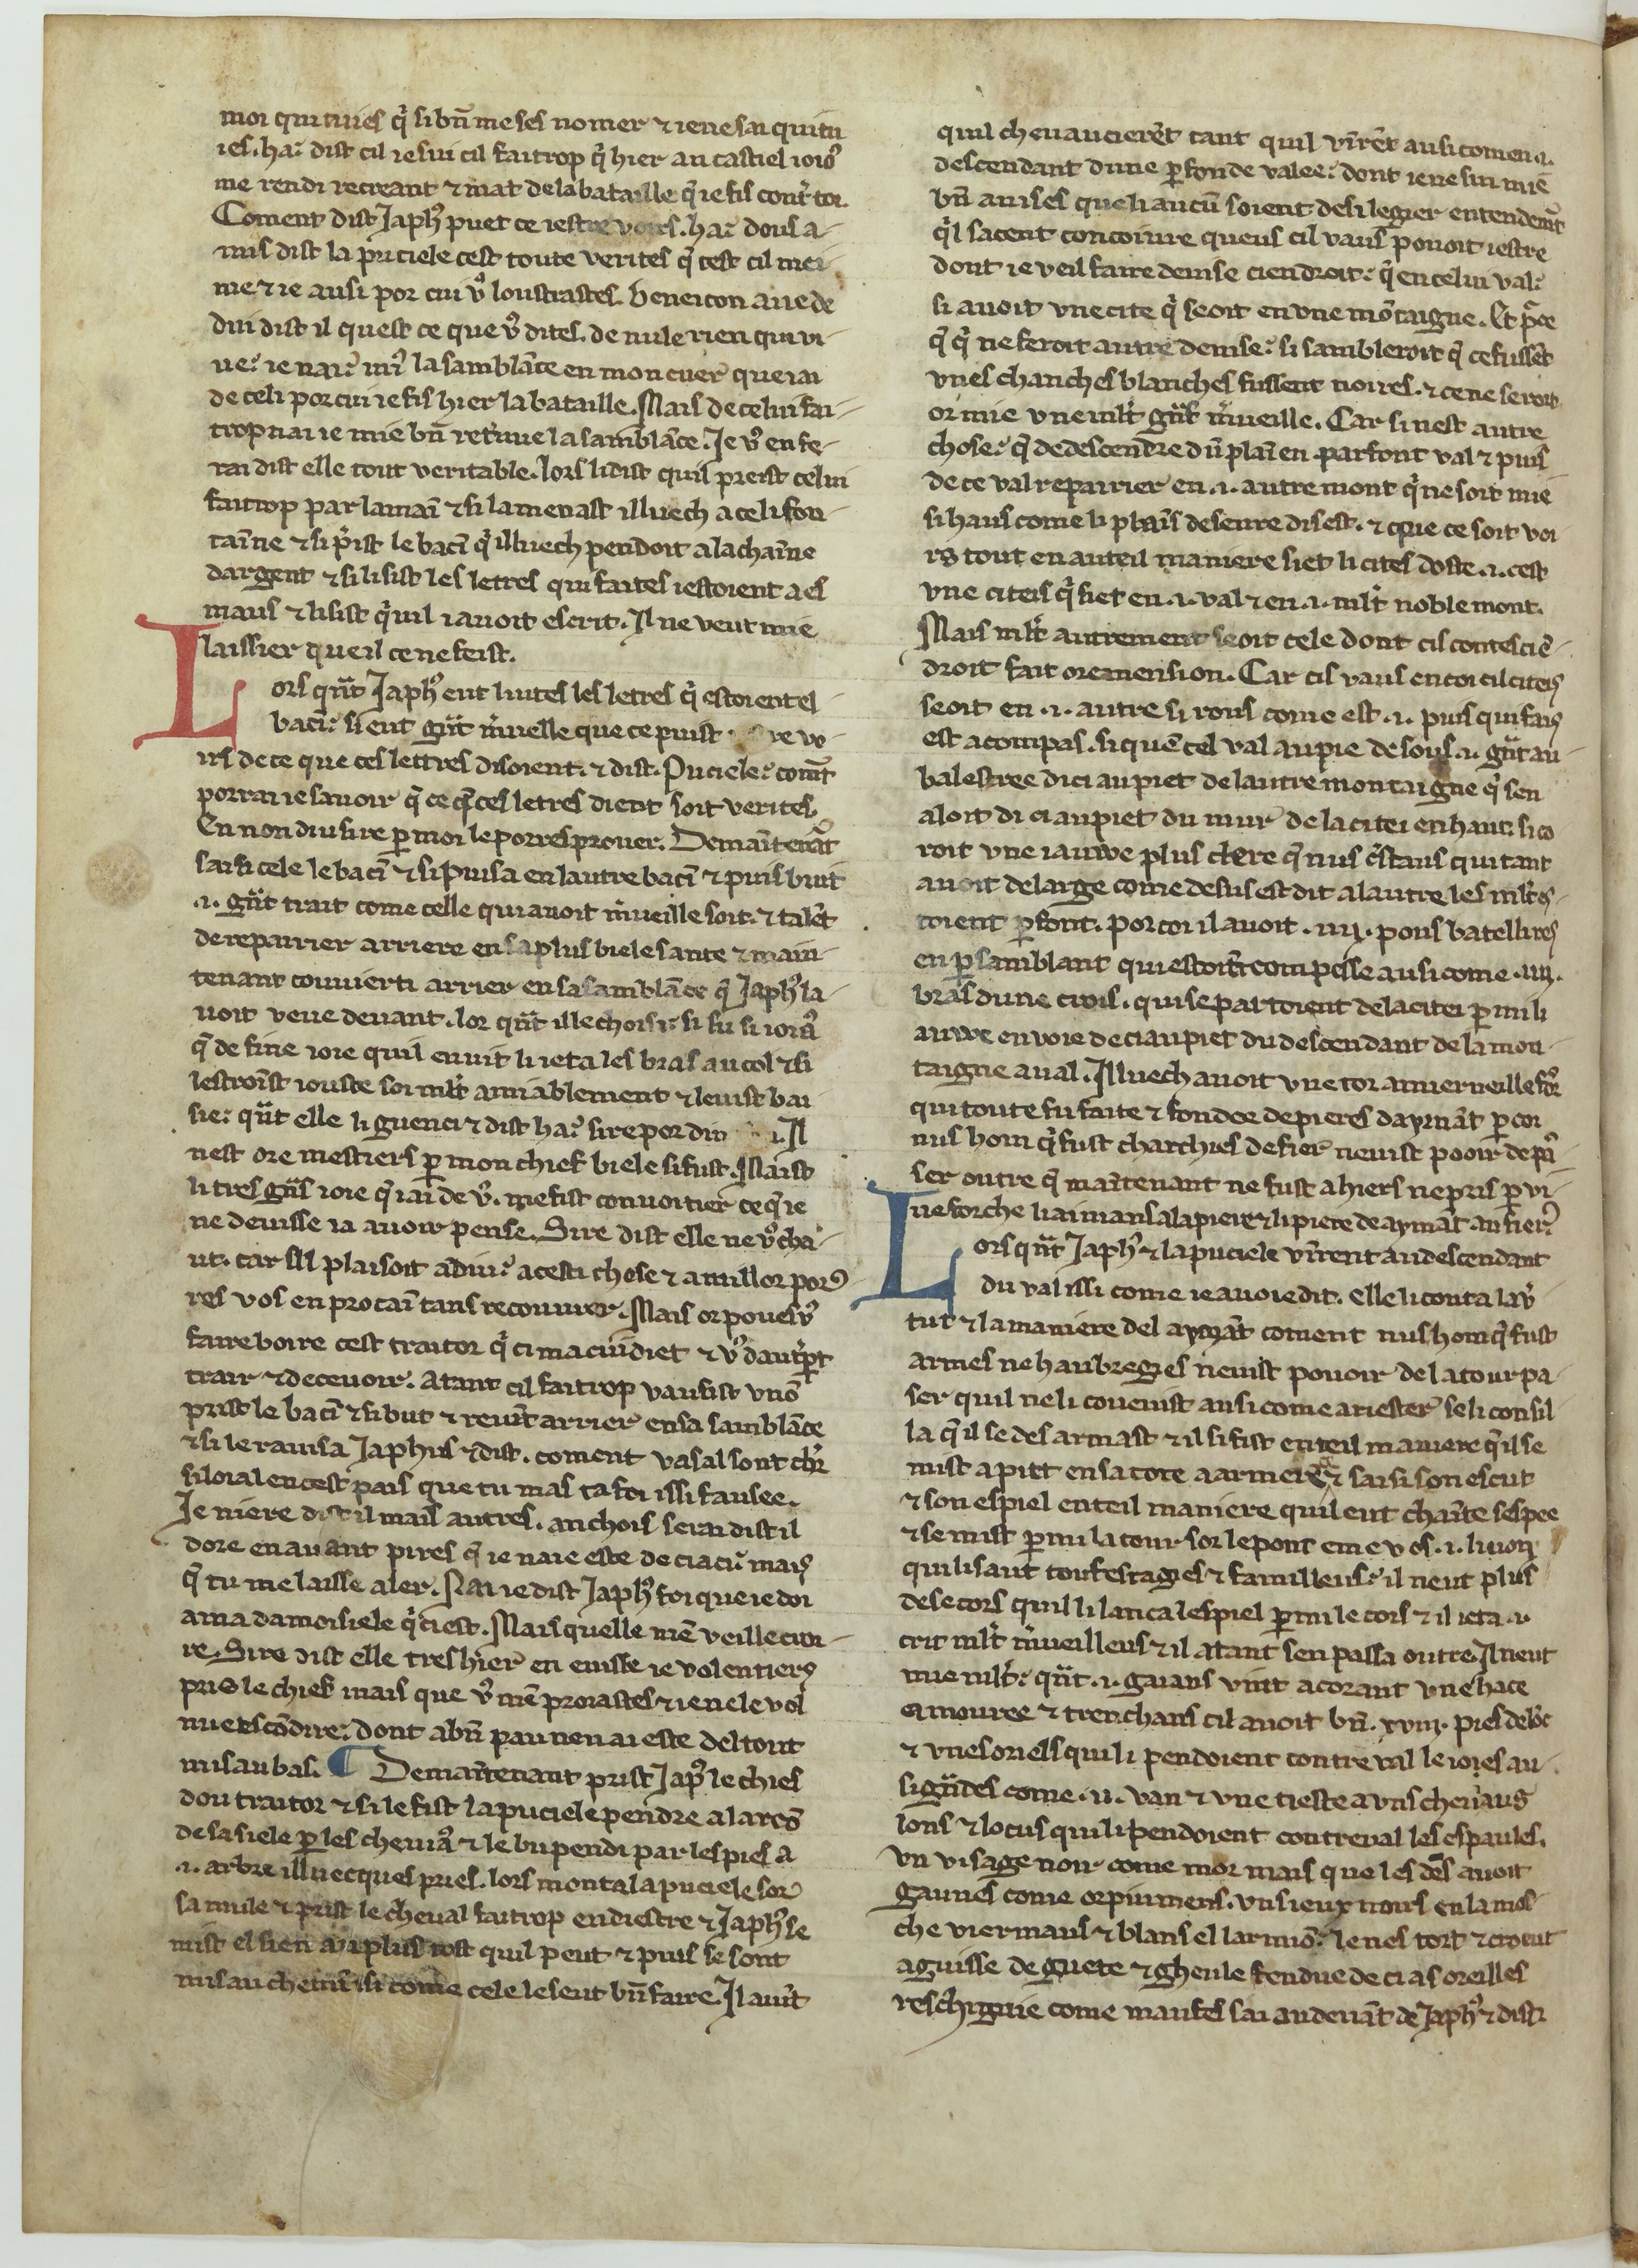 moi qui tu ies q̃ si bñ me ses nomer ⁊ ie ne sai qui tu
ies. ha: dist cil ie sui cil faitrop q̃ hier au castiel ioiꝰ
me rendi recreant ⁊ mat de la bataille q̃ ie fis contᵉ toi.
Coment dist Japhꝰ puet ce iestre voirs. ha: dous a-
mis dist la puciele cest toute verites q̃ cest cil mei-
me ⁊ ie ausi por cui vꝰ loustrastes. beneicon aie de
diu dist il quest ce que vꝰ dites. de nule rien qui vi-
ue: ie nai: mĩ la samblãce en mon cuer que iai
de celi por cui ie fis hier la bataille. Mais de celui fai-
trop nai ie mie bñ retenue la samblãce. Je vꝰ en fe-
rai dist elle tout veritable. lors li dist quil preist celui
faitrop par la maĩ ⁊ si lamenast illuech a celi fon-
taĩne ⁊ si pᵢst le bacĩ q̃ illuech pendoit a la chaĩne
dargent ⁊ si lisist les letres qui faites iestoient a es
maus ⁊ lisist q̃uil i auoit escrit. Il ne veut mie
laissier que il ce ne feist.
Lors qũt Japhꝰ eut liutes les letres q̃ estoient el
bacĩ: si eut gũt mᵉuielle que ce puist re vo-
irs de ce que ces lettres disoient. ⁊ dist. Puciele: comẽt
porrai ie sauoir q̃ ce q̃ ces letres dient soit verites.
En non diu sire ꝑ moi le porres prouer. Demaĩtenãt
saisi cele le bacĩ ⁊ si puisa en lautre bacĩ ⁊ puis buit
.i. gũt trait come celle qui auoit mᵉueille soit. ⁊ talẽt
de repairier arriere en sa plus biele sante ⁊ main-
tenant conuierti arrier en sa samblãce q̃ Japhꝰ la-
uoit veue deuant. lor qũt il le choisi: si fu si ioiãs
q̃ de fine ioie quil en uit li ieta les bras au col ⁊ si
lestroĩst iouste soi mĩt amiablement ⁊ leuist bai
sie: qũt elle li guenci ⁊ dist ha: sire por diu i. Il
nest ore mestiers ꝑ mon chief biele si fust. Mais
li tres gũs ioie q̃ iai de vꝰ. me fist conuoitier ce q̃ ie
ne deuisse ia auoir pense. Sire dist elle ne vꝰ cha-
ut. car sil plaisoit a diu: a cesti chose ⁊ a millor por-
res vos en procaĩ tans recouurer. Mais or poues vꝰ
faire boire cest traitor q̃ ci ma cuidiet ⁊ vꝰ dautᵉ ꝑt
trair ⁊ deceuoir. Atant cil faitrop vausist v nõ
prist le bacĩ ⁊ si but ⁊ reuĩt arrier en sa samblãce
⁊ si le rauisa Japhus ⁊ dist. coment vasal sont chᵉr
si loial en cest pais que tu mas ta foi issi fausee.
Je niere dist il mais autres. anchois serai dist il
dore en auant pires q̃ ie naie este de ci a cũ mais
q̃ tu me laisse aler. Nai ie dist Japhꝰ foi que ie doi
a ma damoisiele q̃ ci est. Mais quelle mẽ veille croi-
re. Sire dist elle tres hier en euisse ie volentiers
pris le chief mais que vꝰ mẽ proiastes ⁊ ie ne le vol
mie escõdire: dont a bñ pau nen ai este del tout
mis au bas. ¶ Demaĩtenant prist Japꝰ le chief
dou traitor ⁊ si le fist la puciele pendre a larcõ
de sa siele ꝑ les cheuiaꝰ ⁊ le bu pendi par les pies a
.i. arbre illuecques pries. lors monta la puciele sor
sa mule ⁊ prist le cheual faitrop en diestre ⁊ Japhꝰ se
mist el sien au plus tost quil peut ⁊ puis se sont
mis au chemĩ si come cele le seut bñ faire. Il auĩt
quil cheuaucierẽt tant quil vĩrẽt ausi comen .i.
descendant dune ꝑfonde valee: dont ie ne sui mie
bñ auises que li aucũ soient de si legier entendemẽt
q̃l sacent concoiure queus cil vaus pouoit iestre
dont ie veil faire deuise ci endroit: q̃ en celui val:
si auoit vne cite q̃ seoit en vne mõtaigne. Et pᵒce
q̃ q̃ ne feroit autre deuise: si sambleroit q̃ ce fussẽt
vnes chanches blanches fussent noires. ⁊ ce ne seroit
or mie vne mlt̃ gũt mᵉueille. Car si nest autre
chose: q̃ de descendre dũ plaĩ en parfont val ⁊ puis
de ce val repairier en .i. autre mont q̃ ne soit mie
si haus come li plaĩs deseure dis est. ⁊ que ce soit voi
rs tout en auteil maniere siet li cites doste .i. cest
vne citeis q̃ siet en .i. val ⁊ en .i. mlt̃ noble mont.
Mais mlt̃ autrement seoit cele dont cis contes ciẽ-
droit fait ore mension. Car cis vaus en coi cil citeis
seoit en .i. autre si rons come est .i. puis qui fais
est a compas. si quẽ cel val au pie desous .i. gũt au-
balestree dici au piet de lautre montaigne q̃ sen
aloit di ci au piet du mur de la citei en haut. si co
roit vne iauwe plus clere q̃ nus cᵢstaus qui tant
auoit de large come desus est dit a lautre les mlt̃ es-
toient ꝑfont. por coi il auoit .iiij. pons batellires
en ꝑ samblant qui estoiẽt compasse ausi come .iiij.
bras dune crois. qui se partoient de la citei ꝑ mi li
auwe en voie de ci au piet du descendant de la mon-
taigne aual. Illuech auoit vne tor a mierueille for
qui toute fu faite ⁊ fondee de pieres daymãt ꝑ coi
nus hom q̃ fust charchies de fier neuist pooir de pa
ser outre q̃ maĩtenant ne fust ahiers ne pris ꝑ vi-
ue forche li aimans a la piere ⁊ li piere de aymãt au fier.
Lors qũt Japhꝰ ⁊ la puciele vĩrent au descendant
du val issi come ie auoie dit. elle li conta la vᵉ
tut ⁊ la maniere del aymãt coment nus hom q̃ fust
armes ne haubregies neuist pouoir de la tour pa-
ser quil ne li couenist ausi come ariester se li consil
la q̃ il se desarmast ⁊ il si fist en teil maniere q̃ il se
mist a piet en sa cote a armeire ⁊ saisi son escut
⁊ son espiel en teil maniere quil eut chaĩte sespee
⁊ se mist ꝑ mi la tour sor le pont eme vos .i. liuon
qui li saut tous esragies ⁊ familleus: il neut plus
de secors quil li lanca lespiel ꝑ mi le cors ⁊ il ieta .i.
crit mlt̃ mᵉueilleus ⁊ il atant sen passa outre. Il neut
mie mlt̃: qũt .i. gaians vint acorant vne hace
emouree ⁊ trenchans cil auoit bñ .xviij. pies de lõc
⁊ vnes orielles qui li pendoient contreual le ioies au
si gũdes come .ij. van ⁊ vne tieste a vns cheuiaus
lons ⁊ locus qui li pendoient contreual les espaules.
Vn visage noir come mor mais que les dẽs auoit
gaunes come orpiumens. vns ieux noirs en la mos-
che viermaus ⁊ blans el larmiõ: le nes tort ⁊ crocut
aguisse de guete ⁊ gheule fendue de ci as oreilles
reschignie come maufes sai au deuãt de Japhꝰ ⁊ dist: